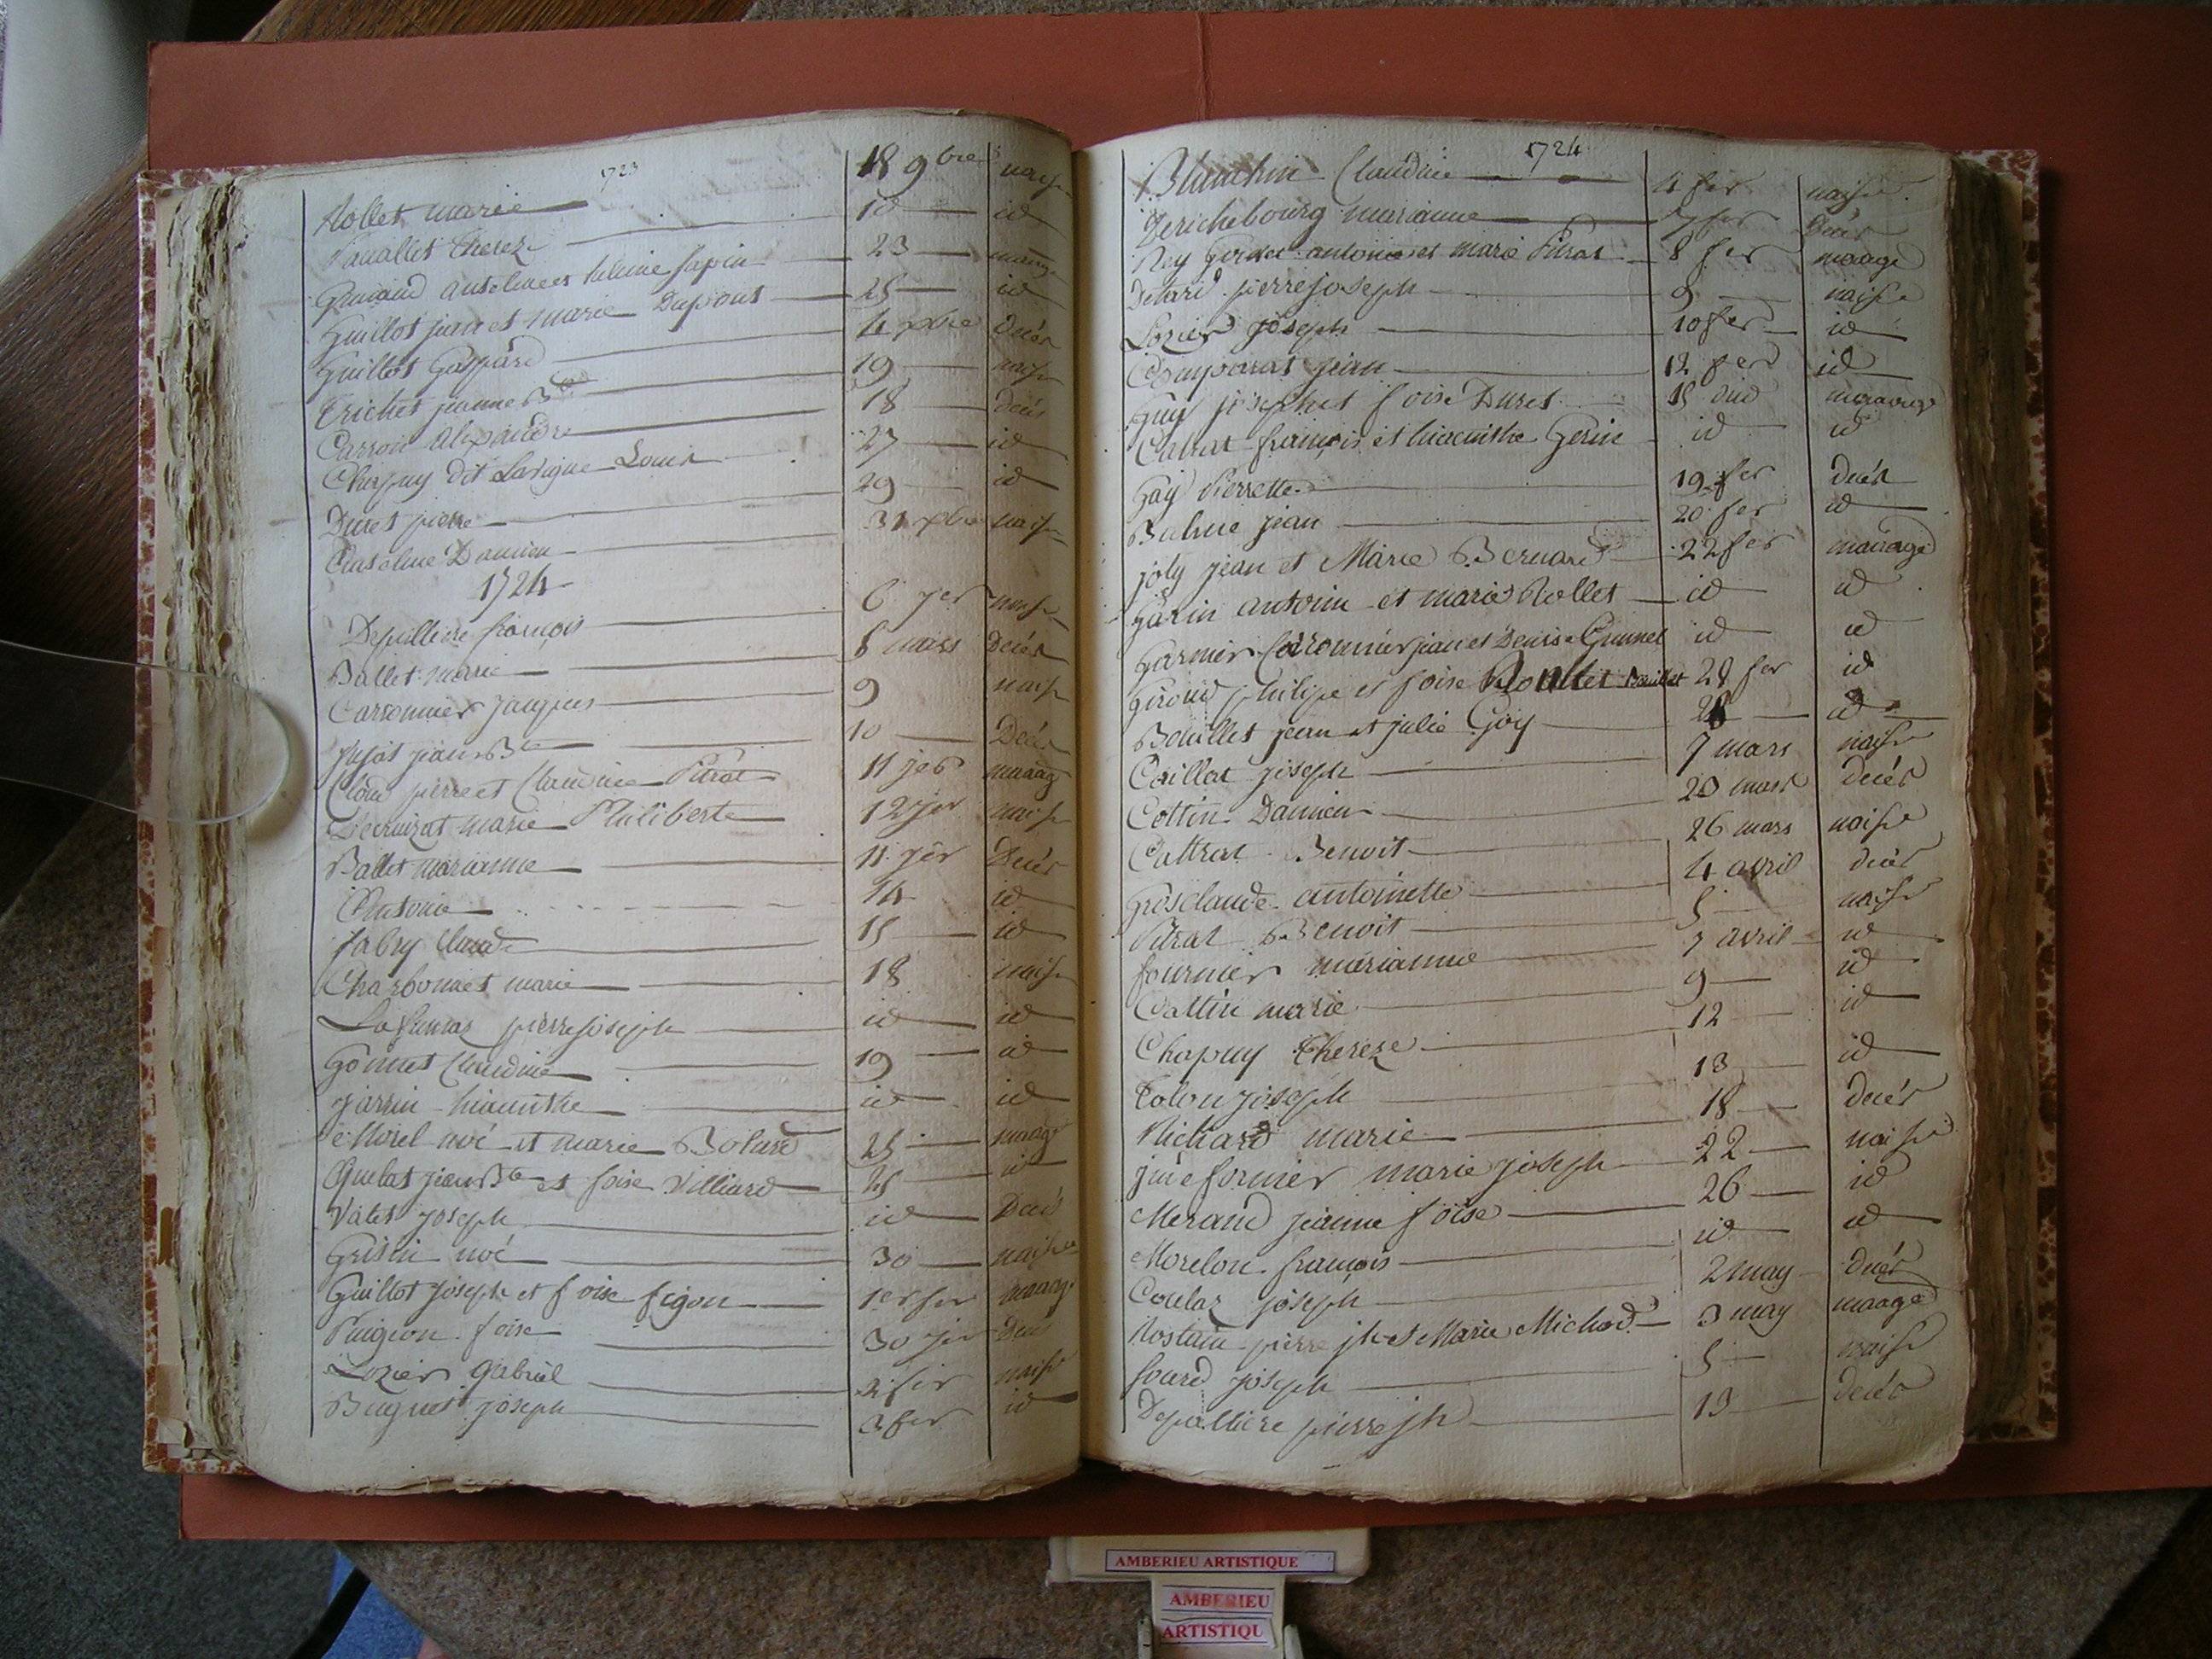 1723
Rollet marie 18 9bre naise
Thereze 10 id
anselme et helaine Sapin 23 mariage
Guillot jean et marie Dupont 25 id
Guillot Gaspard 4 xbre decès
Trichet jeanne Bte 19 naise
Carron alexandre 18 decès
Chapuy dit Lavigne Louis 27 id
Duret pierre 29 id
Anselme Damien 31 xbre naise
1724
Depalliere françois 6 jer naise
Ballet marie 8 mars Decés
Carronnier jacques 9 naise
jean Bte 10 Decés
pierre et Claudine Pirat 11 jer mariag
marie Philiberte 12 jer naise
Ballet marianne 11 jer Decés
Antoine 14 id
fabry Claude 15 id
Charbonnet marie 18 naise
pierre joseph id id
Gonnet Claudine 19 id
jarrin hiacinthe id id
Morel noé et marie Bolard 25 mariage
Quelat jean Bte et foise Villiard 25 id
Valet joseph id Decés
Grisin noé 30 naise
Guillot joseph et foise figon 1er fer mariag
Puigeon foise 30 jer Decés
Lozier Gabriel 2 fer naise
Buguet joseph 3 fer id
1724
Blanchin Claudine 4 fer naise
Derichebourg marianne 7 fer Decés
Rey antoine et marie Pirat 8 fer mariage
pierre joseph 9 naise
Lozier joseph 10 fer id
Comparat jean 12 fer id
Guy joseph et foise Duret 15 dud mariage
Catrat françois et hiacinthe Gerin id id
Gay Pierrette 19 fer decés
Balme jean 20 fer id
joly jean et Marie Bernard 22 fer mariage
Garin antoine et marie Rollet id id
Garnier Carronnier jean et Denise Gunnet id id
Giroud philipe et foise Roullet Bouillet 28 fer id
Bouillet jean et julie Goy 28 id
Caillat joseph 7 mars naise
Cottin Damien 20 mars decés
Cattrat Benoit 26 mars naise
Grosclaude antoinette 4 avril decés
Pirat Benoit 5 naise
fournier marianne 7 avril id
Cattin marie 9 id
Chapuy Thereze 12 id
Colon joseph 13 id
Richard marie 18 decés
marie joseph 22 naise
Merand jeanne foise 26 id
Morelon françois id id
Coulaz joseph 2 may decés
Rostain pierre jh et Marie Michod 3 may mariage
joseph 5 naise
Depalliere pierre jh 13 decés
AMBERIEU ARTISTIQUE
AMBERIEU
ARTISTIQU